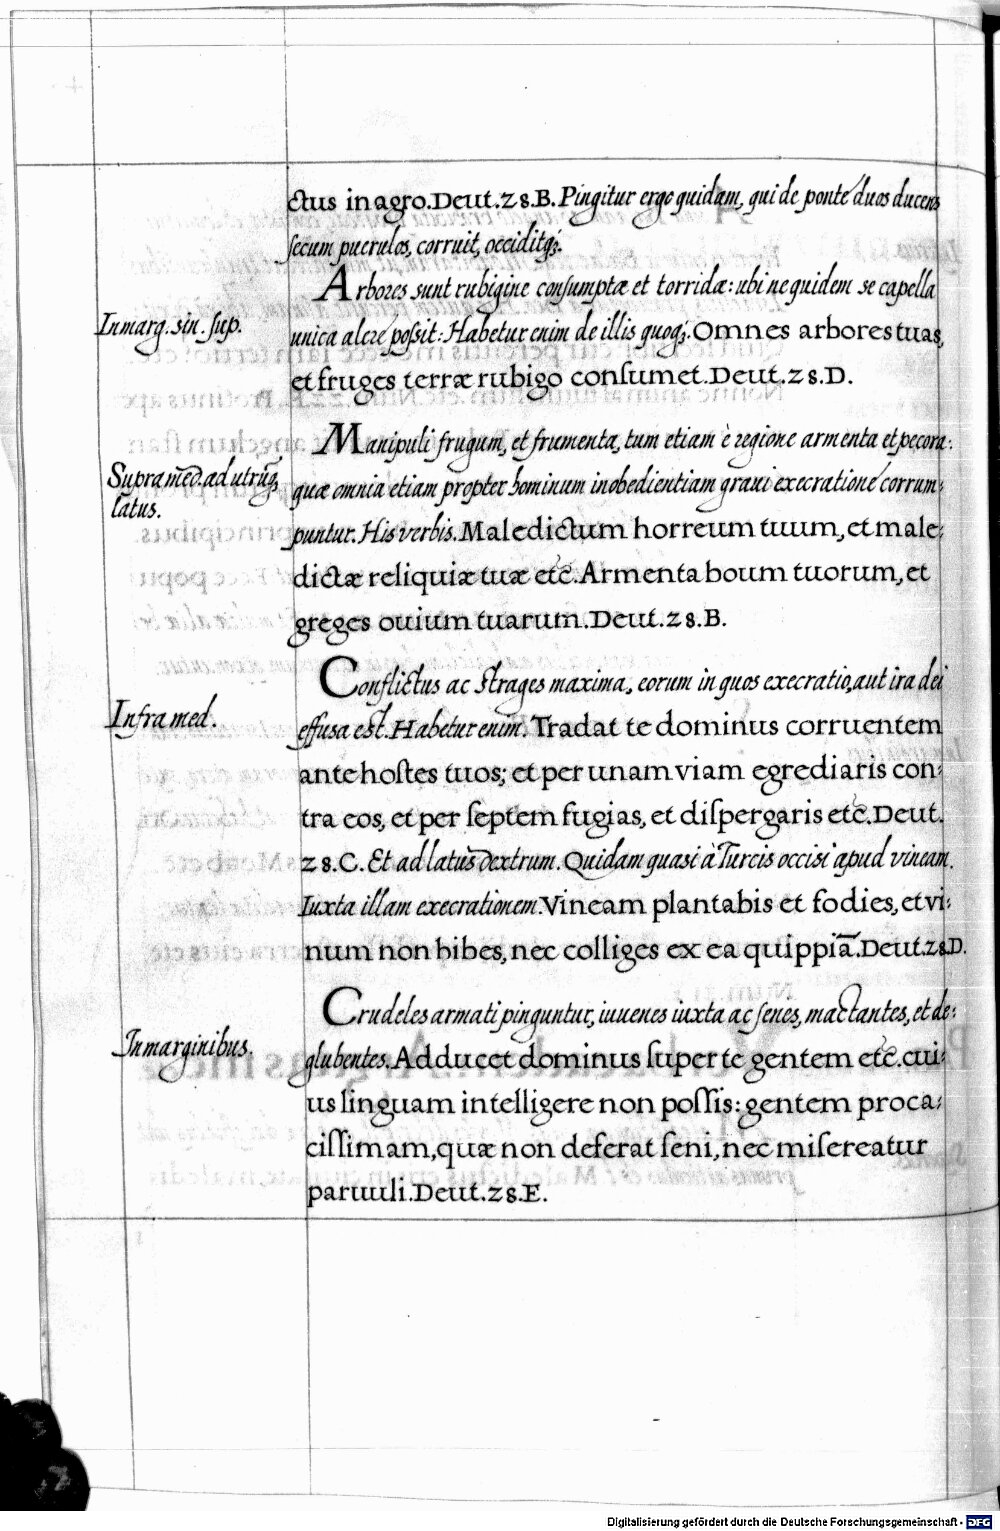 ctus in agro. Deut. 28. B. Pingitur ergo quidam, qui de ponte duos ducens
secum puerulos, corruit, occiditq;.
Arbores sunt rubigine consumptæ et torridæ: ubi ne quidem se capella
In marg. sin. sup.
unica alere possit: Habetur enim de illis quoq;. Omnes arbores tuas,
et fruges terræ rubigo consumet. Deut. 28. D.
Manipuli frugum, et frumenta, tum etiam è regione armenta et pecora:
Supra med. ad utrũq;
latus.
quæ omnia etiam propter hominum inobedientiam graui execratione corrum:
puntur. His verbis. Maledictum horreum tuum, et male:
dictæ reliquiæ tuæ etc. Armenta boum tuorum, et
greges ouium tuarum. Deut. 28. B.
Conflictus ac strages maxima, eorum in quos execratio, aut ira dei
Infra med.
effusa est. Habetur enim. Tradat te dominus corruentem
ante hostes tuos; et per unam viam egrediaris con:
tra eos, et per septem fugias, et dispergaris etc. Deut.
28. C. Et ad latus dextrum. Quidam quasi à Turcis occisi apud vineam.
Iuxta illam execrationem. Vineam plantabis et fodies, et vi:
num non bibes, nec colliges ex ea quippiã. Deut. 28. D.
Crudeles armati pinguntur, iuuenes iuxta ac senes, mactantes, et de:
In marginibus.
glubentes. Adducet dominus super te gentem etc. cui:
us linguam intelligere non possis: gentem proca:
cissimam, quæ non deferat seni, nec misereatur
paruuli. Deut. 28. E.
Digitalisierung gefördert durch die Deutsche Forschungsgemeinschaft - DFG